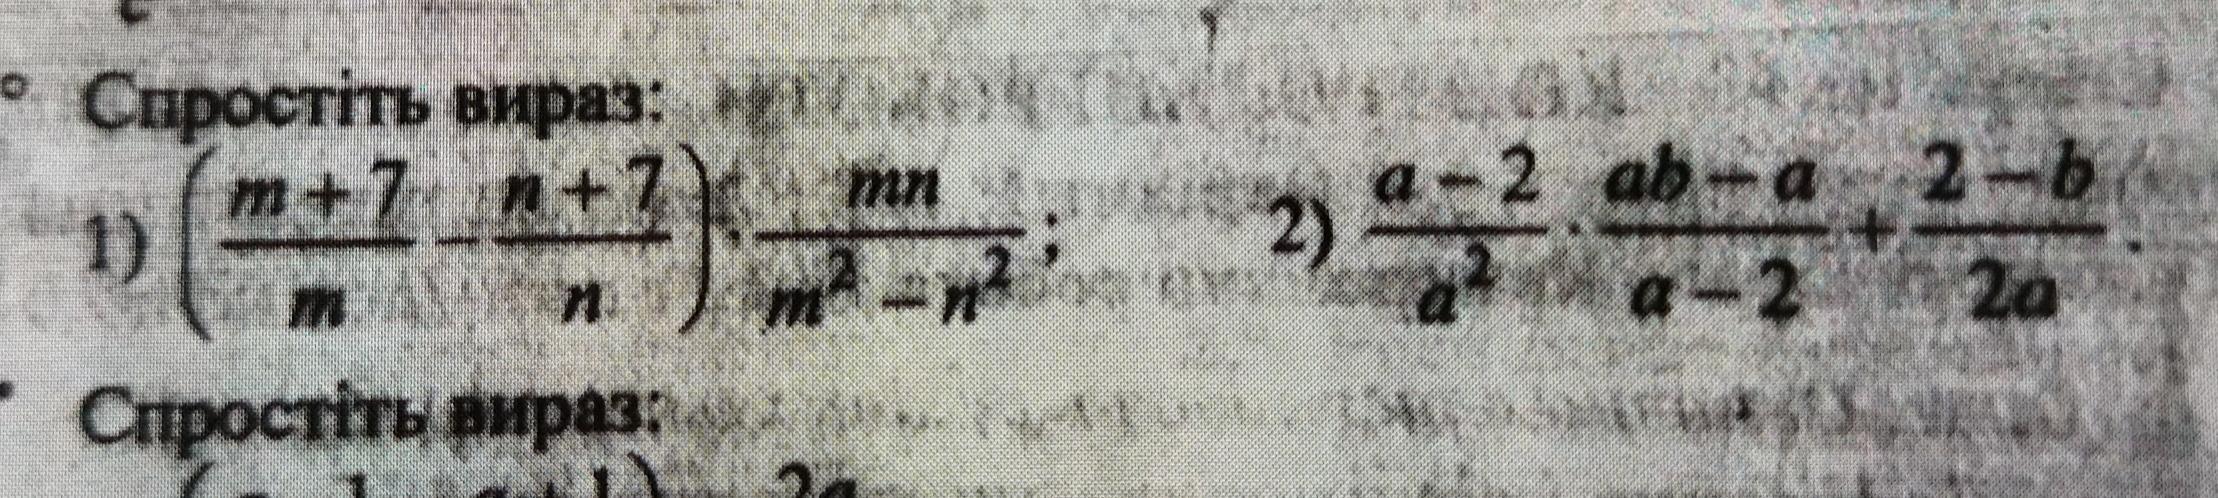 Спростіть вираз:
1) \left(\frac{m+7}{m} - \frac{n+7}{n}\right) \cdot \frac{mn}{m^2-n^2}; 2) \frac{a-2}{a^2} \cdot \frac{ab-a}{a-2} + \frac{2-b}{2a}.
Спростіть вираз: